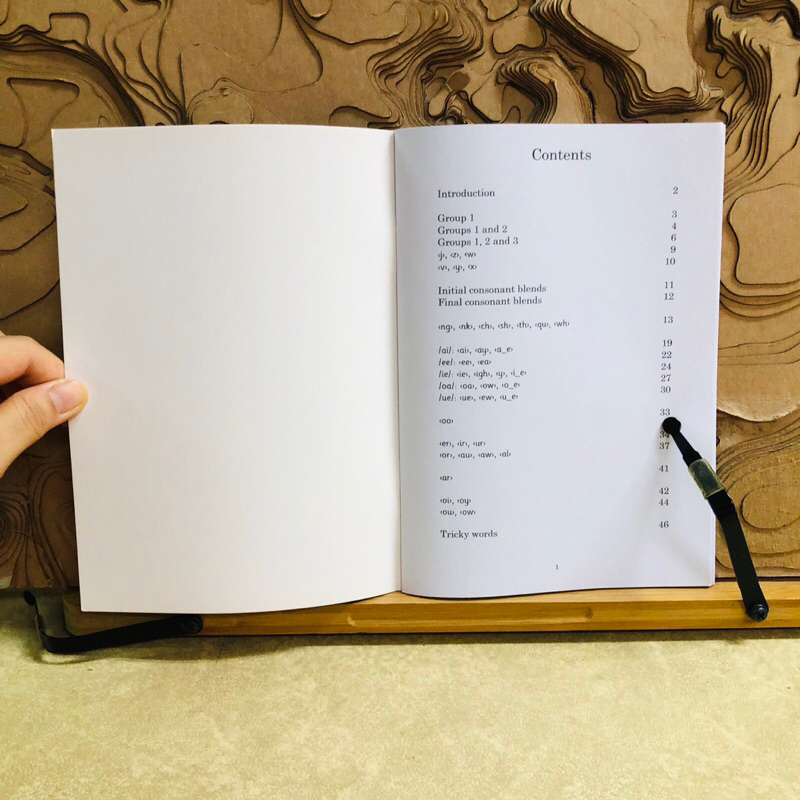 Contents
Introduction 2
Group 1 3
Groups 1 and 2 4
Groups 1, 2 and 3 6
‹j›, ‹z›, ‹w› 9
‹v›, ‹y›, ‹x› 10
Initial consonant blends 11
Final consonant blends 12
‹ng›, ‹nk›, ‹ch›, ‹sh›, ‹th›, ‹qu›, ‹wh› 13
/ai/: ‹ai›, ‹ay›, ‹a_e› 19
/ee/: ‹ee›, ‹ea› 22
/ie/: ‹ie›, ‹igh›, ‹y›, ‹i_e› 24
/oa/: ‹oa›, ‹ow›, ‹o_e› 27
/ue/: ‹ue›, ‹ew›, ‹u_e› 30
‹oo› 33
‹er›, ‹ir›, ‹ur› 34
‹or›, ‹au›, ‹aw›, ‹al› 37
‹ar› 41
‹oi›, ‹oy› 42
‹ou›, ‹ow› 44
Tricky words 46
1